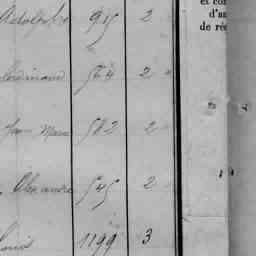 Adolphe 915 2
et con
d'a
de ré
Ferdinand 564 2 "
Jean Marie 582 2 "
Alexandre 545 2 "
Louis 1199 3